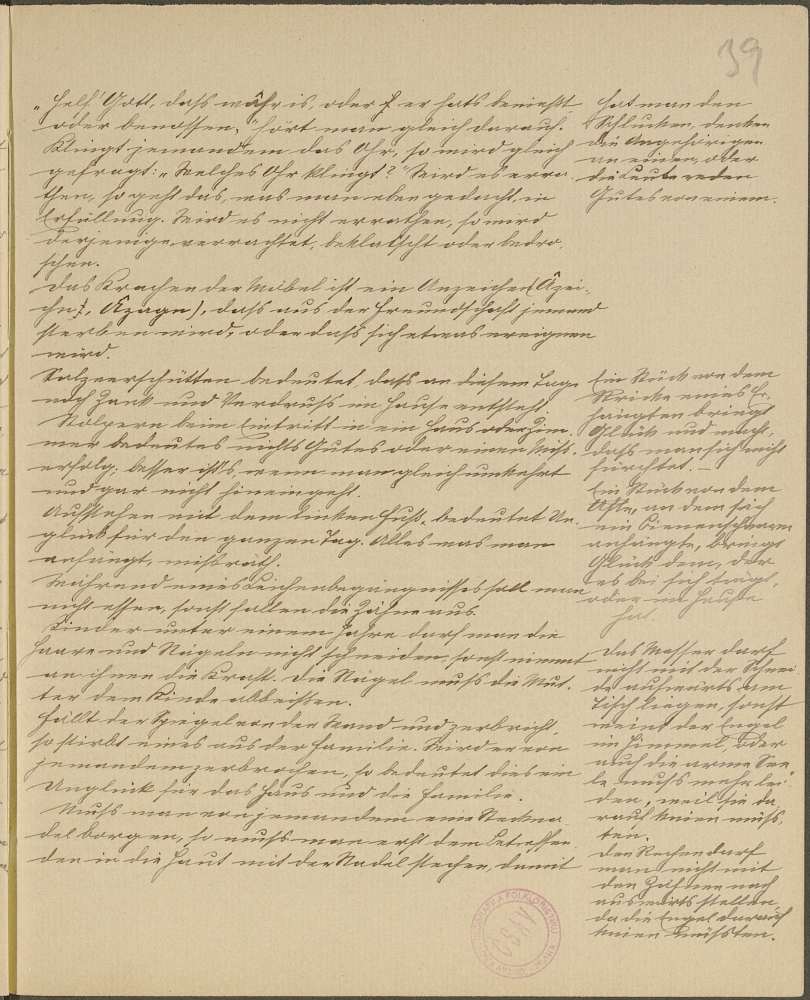 39
„Helf' Gott, daß wâhr is, oder er hats benießt
oder benossen," hört man gleich darauf.
Klingt jemandem das Ohr, so wird gleich
gefragt: „Welches Ohr klingt?" Wird es erra-
then, so geht das, was man eben gedacht, in
Erfüllung. Wird es nicht errathen, so wird
derjenige verrachtet, beklatscht oder bedro-
schen.
Das Krachen der Möbel ist ein Anzeichen (Âzei-
chn, Âzagn), daß aus der Freundschaft jemand
sterben wird, oder daß sich etwas ereignen
wird.
Salzverschütten bedeutet, daß an diesem Tage
noch Zank und Verdruß im Hause entsteht.
Stolpern beim Eintritt in ein Haus oder Zim-
mer bedeutet nichts Gutes oder einen Miß-
erfolg; besser ist's, wenn man gleich umkehrt
und gar nicht hineingeht.
Aufstehen mit dem linken Fuß, bedeutet Un-
glück für den ganzen Tag. Alles was man
anfängt, mißräth.
Während eines Leichenbegängnisses soll man
nicht essen, sonst fallen die Zähne aus.
Kinder unter einem Jahre darf man die
Haare und Nägeln nicht schneiden, sonst nimmt
man ihnen die Kraft. Die Nägel muß die Mut-
ter dem Kinde abbeißen.
Fällt der Spiegel von der Wand und zerbricht,
so stirbt eines aus der Familie. Wird er von
jemandem zerbrochen, so bedeutet dies ein
Unglück für das Haus und die Familie.
Muß man von jemandem eine Steckna-
del borgen, so muß man erst dem Betreffen-
den in die Haut mit der Nadel stechen, damit
Hat man den
Schlucken, denken
die Angehörigen
an einen, oder
die Leute reden
Gutes von einem.
Ein Stück von dem
Stricke eines Er-
hängten bringt
Glück und macht,
daß man sich nicht
fürchtet. —
Ein Stück von dem
Aste, an dem sich
ein Bienenschwarm
anhängte, bringt
Glück dem, der
es bei sich trägt,
oder im Hause
hat.
Das Messer darf
nicht mit der Schnei-
de aufwärts am
Tisch liegen, sonst
weint der Engel
im Himmel, oder
auch die arme See-
le muß mehr lei-
den, weil sie da-
rauf knien muß-
te.
Den Rechen darf
man nicht mit
den Zähnen nach
auswärts stellen,
da die Engel darauf
knien müßten.